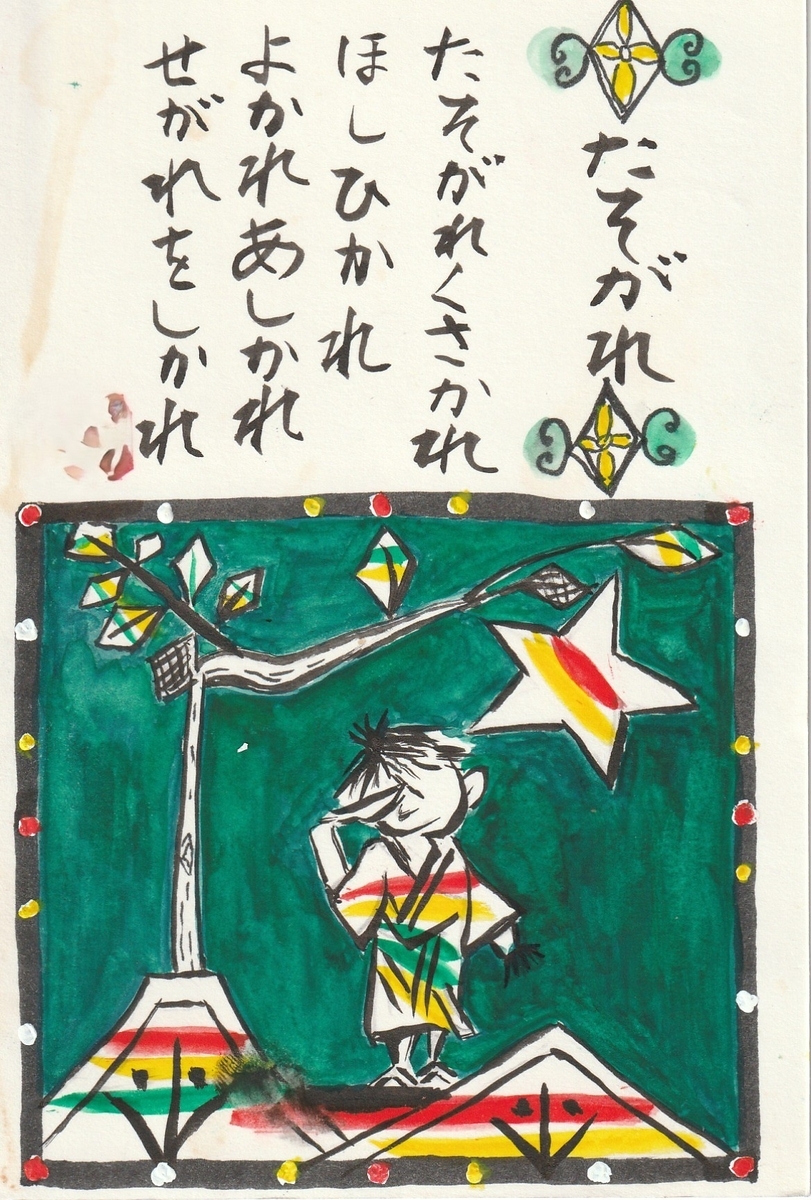 たそがれ
たそがれくさかれ
ほしひかれ
よかれあしかれ
せがれをしかれ